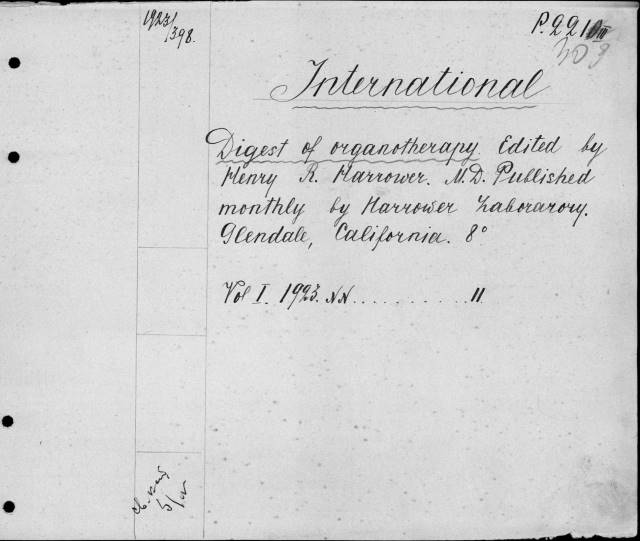 1923/
1398.
P.221
International
Digest of organotherapy. Edited by
Henry R. Harrower. M.D. Published
monthly by Harrower Laborarory.
Glendale, California. 8°
Vol I. 1923. NN...........11